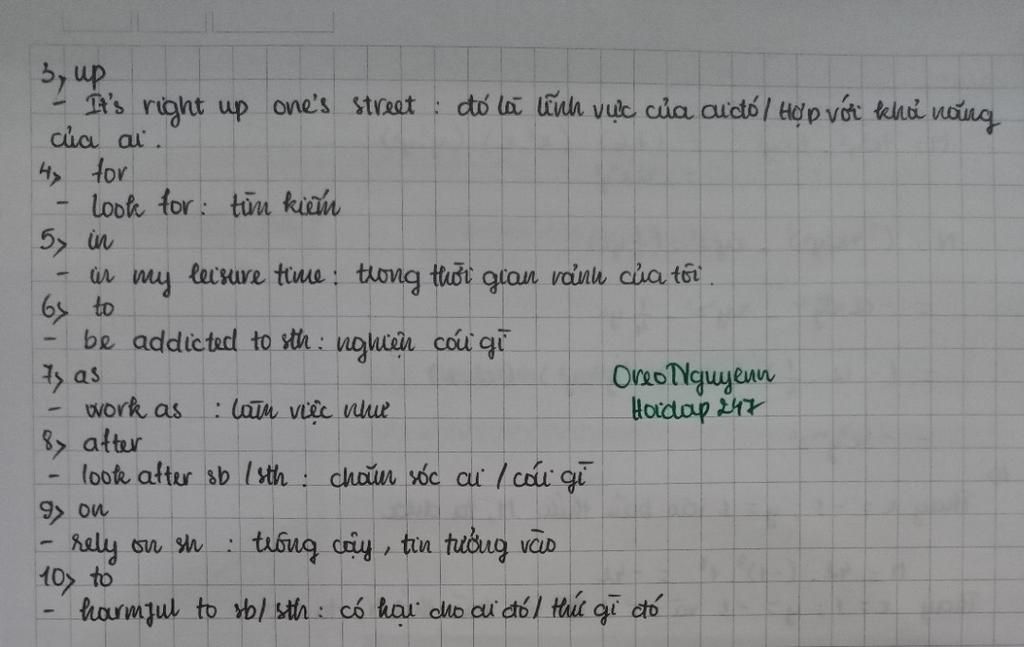 3, up
- It's right up one's street : đó là lĩnh vực của ai đó / Hợp với khả năng
của ai.
4> for
- look for : tìm kiếm
5> in
- in my leisure time : trong thời gian rảnh của tôi.
6> to
- be addicted to sth : nghiện cái gì
7> as
OreoNguyenn
- work as : làm việc như
Hoidap 247
8> after
- look after sb / sth : chăm sóc ai / cái gì
9> on
- rely on sh : trông cậy, tin tưởng vào
10> to
- harmful to sb/ sth : có hại cho ai đó/ thứ gì đó